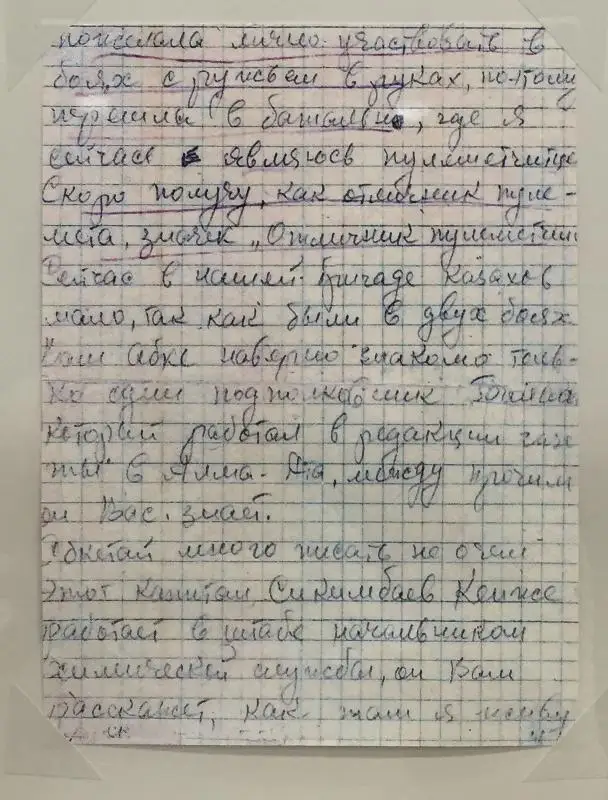 пожелала лично участвовать в
боях с ружьем в руках, поэтому
перешла в батальон, где я
сейчас являюсь пулеметчице
Скоро получу, как отличник пуле-
мета, значек „Отличник пулеметчик
Сейчас в нашей бригаде казахов
мало, так как были в двух боях
Вам Абке наверно знакомо толь-
ко один подполковник
который работал в редакции газе
ты в Алма-Ата, между прочим
он Вас знает.
Абкетай много писать не очем
Этот капитан Сикимбаев Кенже
работает в штабе начальником
химической службы, он Вам
расскажет, как там я живу